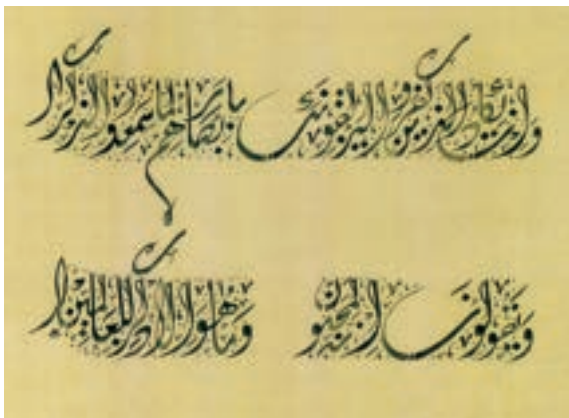 وإن يكاد الذين كفروا ليزلقونك بأبصارهم لما سمعوا الذكر
ويقولون إنه لمجنون وما هو إلا ذكر للعالمين